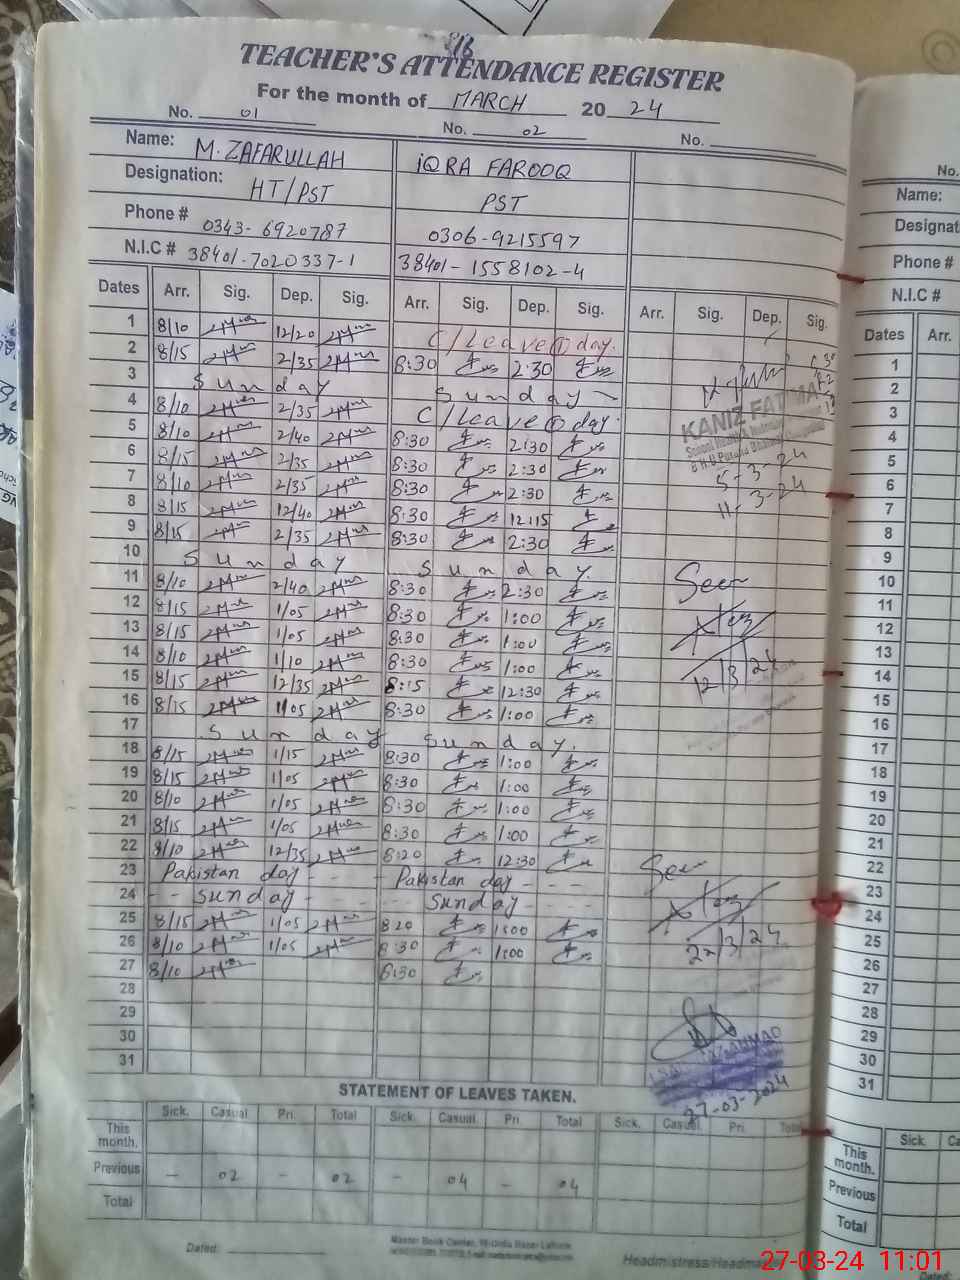 16
TEACHER'S ATTENDANCE REGISTER
For the month of MARCH 2024
No. 01 No. 02 No.
Name: M. ZAFARULLAH iQRA FAROOQ
Designation: HT/PST PST
Phone # 0343-6920787 0306-9215597
N.I.C # 38401-7020337-1 38401-1558102-4
Dates Arr. Sig. Dep. Sig. Arr. Sig. Dep. Sig. Arr. Sig. Dep. Sig.
1 8/10 12/20 C/Leave 1 day.
2 8/15 2/35 8:30 2:30
3 Sunday Sunday
4 8/10 2/35 C/Leave day
5 8/10 2/40 8:30 2:30
6 8/15 2/35 8:30 2:30
7 8/10 2/35 8:30 2:30
8 8/15 12/40 8:30 12:15
9 8/15 2/35 8:30 2:30
10 Sunday Sunday.
11 8/10 2/40 8:30 2:30
12 8/15 1/05 8:30 1:00
13 8/15 1/05 8:30 1:00
14 8/10 1/10 8:30 1:00
15 8/15 12/35 8:15 12:30
16 8/15 1/05 8:30 1:00
17 Sunday Sunday.
18 8/15 1/15 8:30 1:00
19 8/15 1/05 8:30 1:00
20 8/10 1/05 8:30 1:00
21 8/15 1/05 8:30 1:00
22 8/10 12/35 8:20 12:30
23 Pakistan day - - - Pakistan day - - -
24 - - Sunday - - - - - - Sunday - - -
25 8/15 1/05 820 1:00
26 8/10 1/05 8:30 1:00
27 8/10 8:30
28
29
30
31
KANIZ FATIMA
5-3-24
11-3-24
Seen
12/3/24
Seen
22/3/24
AHMAD
27-03-2024
STATEMENT OF LEAVES TAKEN.
Sick. Casual Pri. Total Sick. Casual. Pri. Total Sick. Casual. Pri. Total
This month.
Previous - 02 - 02 - 04 - 04
Total
Dated:
Master Book Center, Lahore
Headmistress/
No.
Name:
Designat
Phone #
N.I.C #
Dates Arr.
1
2
3
4
5
6
7
8
9
10
11
12
13
14
15
16
17
18
19
20
21
22
23
24
25
26
27
28
29
30
31
Sick. Ca
This month.
Previous
Total
Dated:
27-03-24 11:01